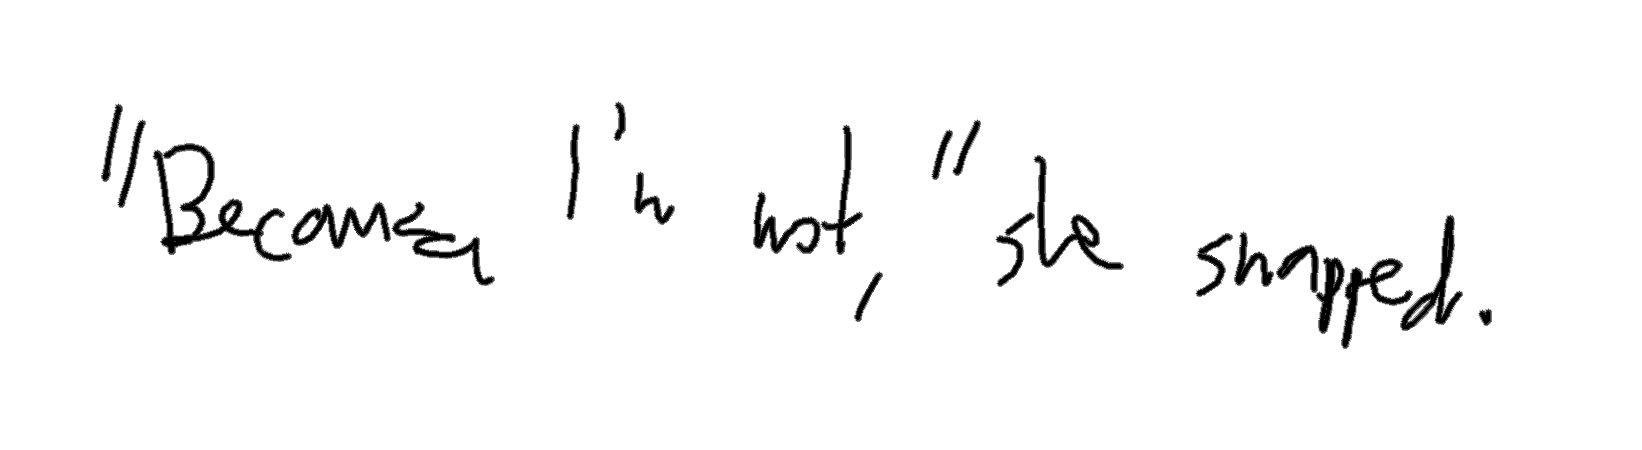 "Because I'm not," she snapped.